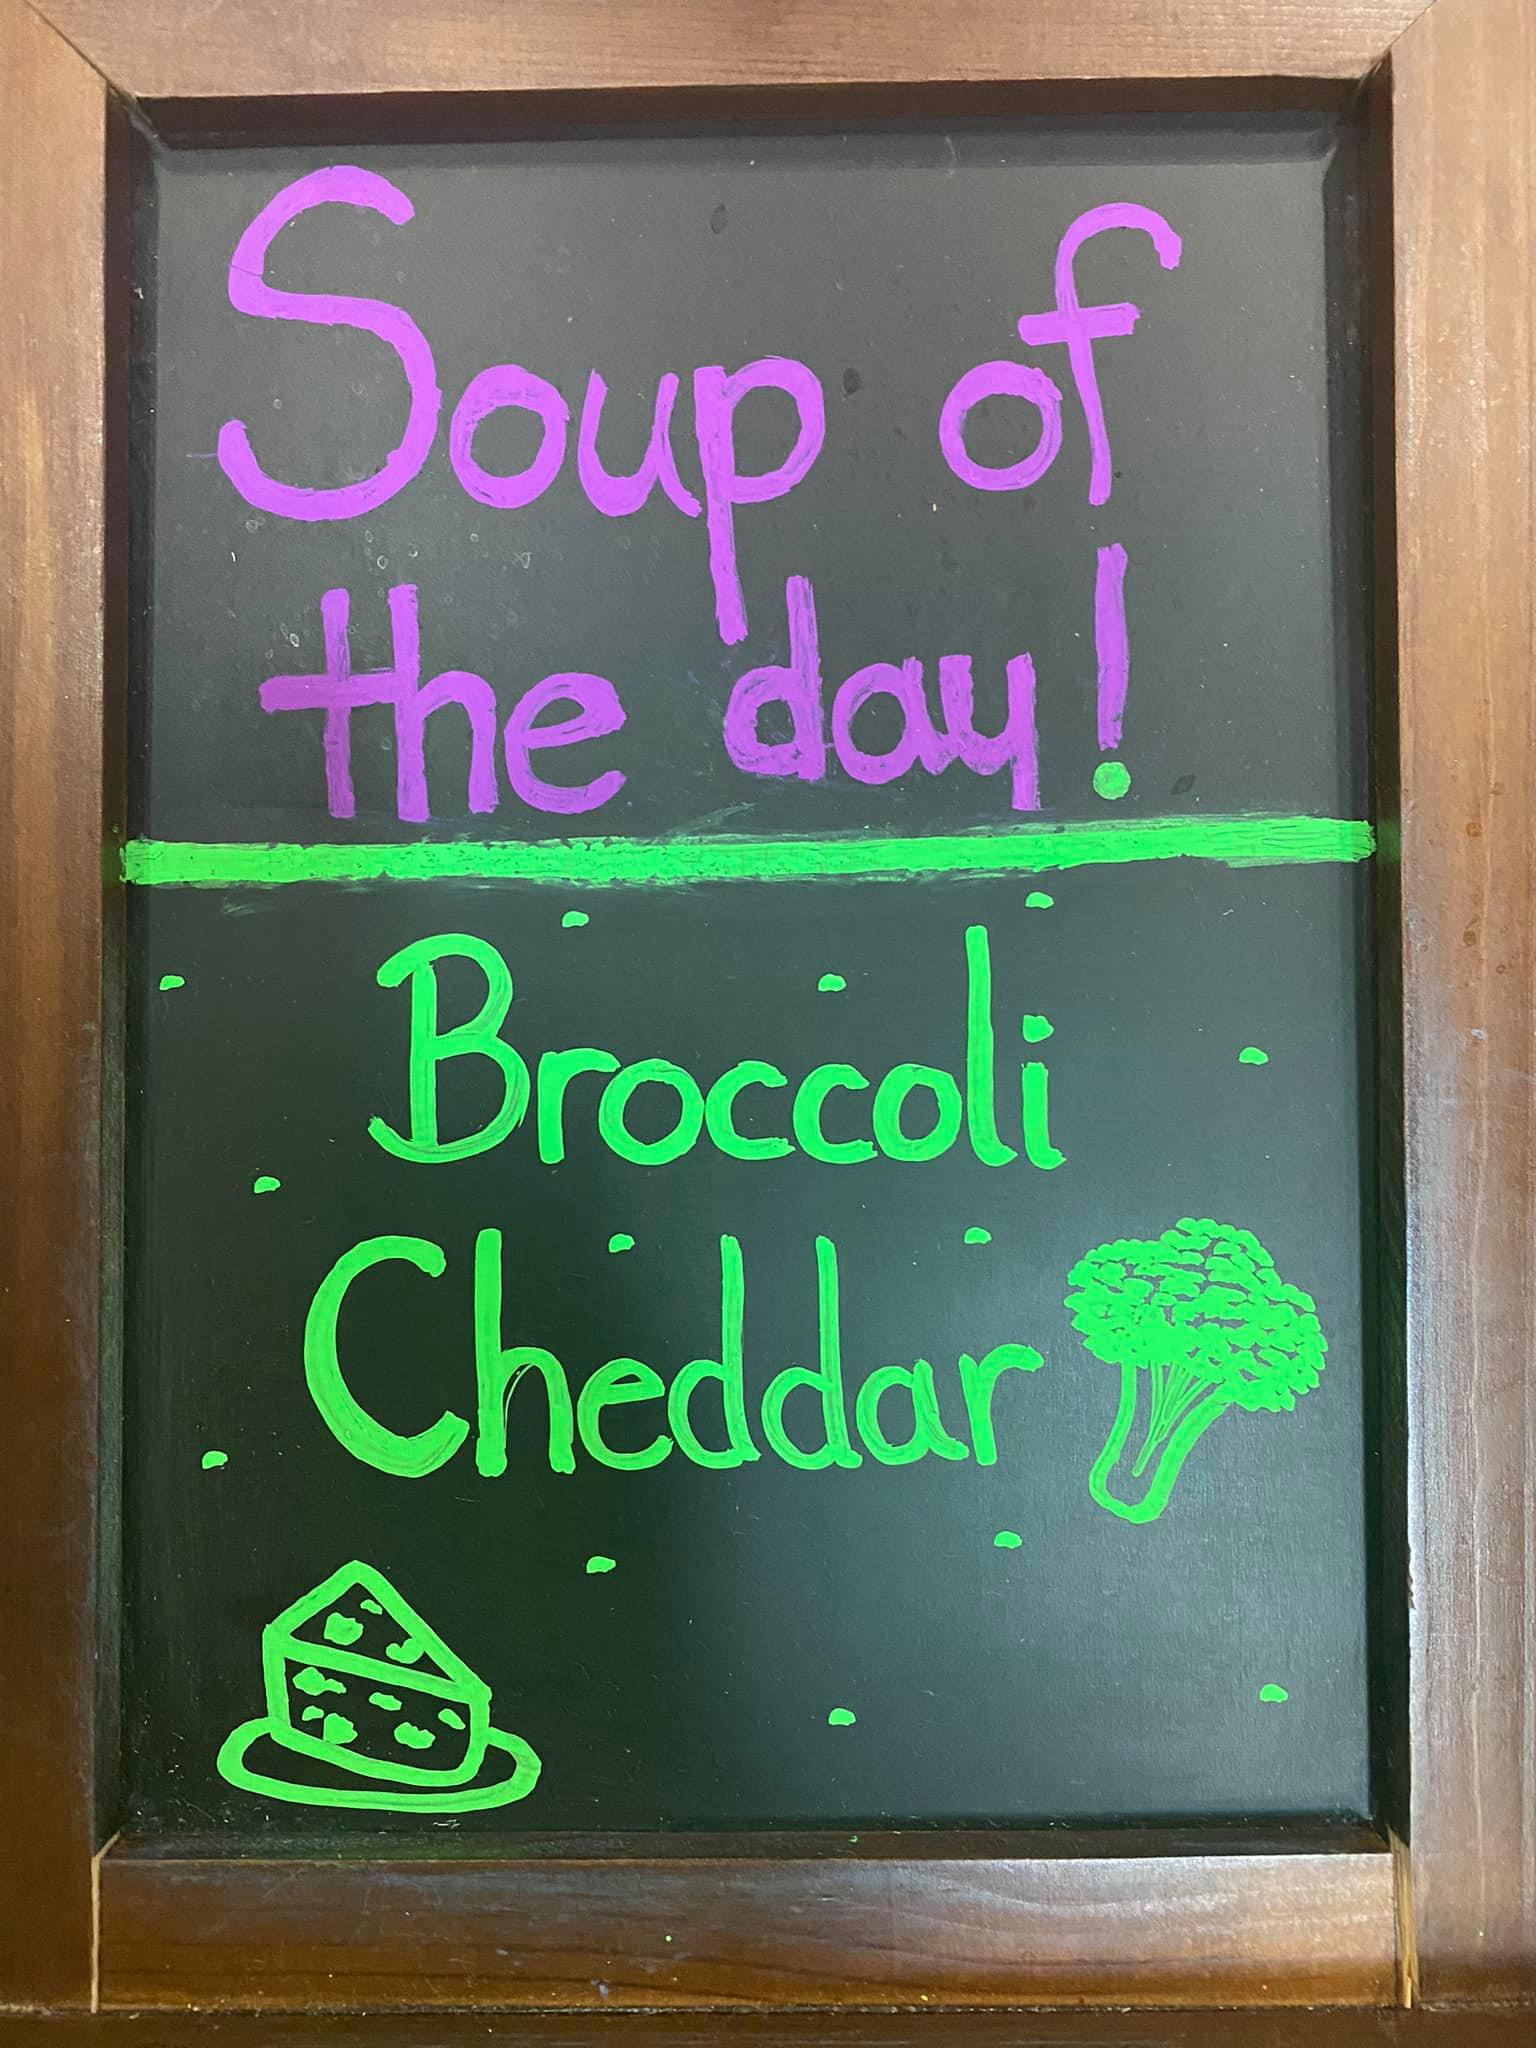 Soup of
the day!
Broccoli
Cheddar